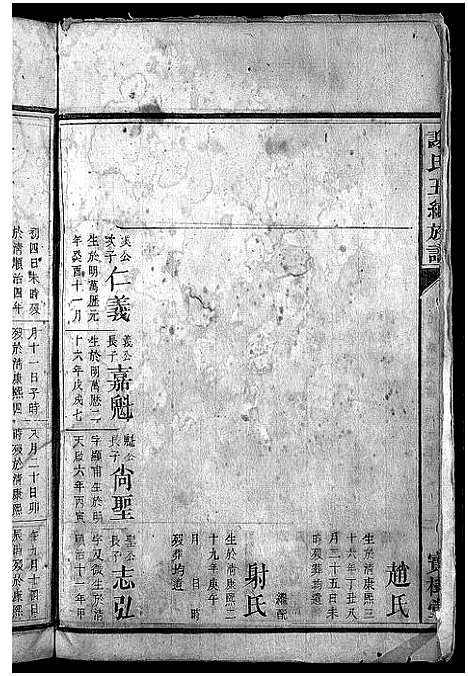 謝氏五編族譜
寶樹堂
趙氏
生於清康熙三
十六年丁丑八
月二十五日未
時歿葬均遺
射氏
繼配
生於清康熙二
十九年庚午
月日時
歿葬均遺
仁義
公
次子
生於明萬歷元
年癸酉十一月
嘉魁
義公
長子
生於明萬歷二
十六年戊戌七
尚聖
魁公
長子
字顯甫生於明
天啟六年丙寅
志弘
聖公
長子
字又微生於清
順治十一年甲
初四日未時歿
於清順治四年
月十一日子時
歿於清康熙四
八月二十日卯
時歿於清康熙
午九月十四日
辰時歿於康熙